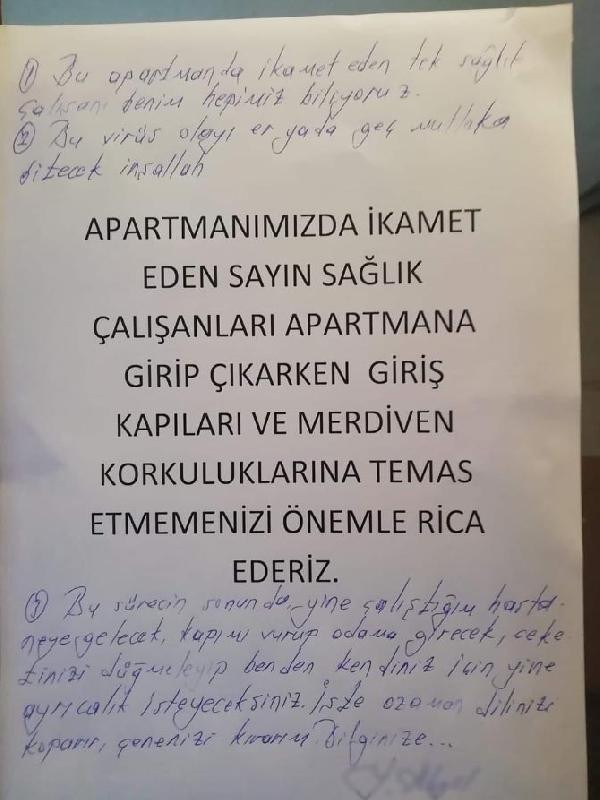 ① Bu apartmanda ikamet eden tek sağlık
çalışanı benim hepimiz biliyoruz.
② Bu virüs olayı er yada geç mutlaka
bitecek inşallah
APARTMANIMIZDA İKAMET
EDEN SAYIN SAĞLIK
ÇALIŞANLARI APARTMANA
GİRİP ÇIKARKEN GİRİŞ
KAPILARI VE MERDİVEN
KORKULUKLARINA TEMAS
ETMEMENİZİ ÖNEMLE RİCA
EDERİZ.
③ Bu sürecin sonunda, yine çalıştığım hasta-
neye gelecek, kapımı vurup odama girecek, ceke-
tinizi düğmeleyip benden kendiniz için yine
ayrıcalık isteyeceksiniz. İşte o zaman dilinizi
koparır, çenenizi kırarım Bilginize...